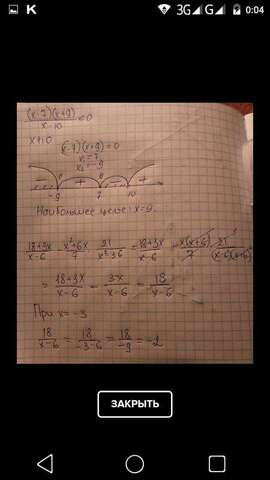 K 3G G 0:04
(x-7)(x+9)/x-10 ≤0
x≠10
(x-7)(x+9)=0
x₁=7
x₂=-9
- + - +
-9 7 10
Наибольшее целое: x=9.
18+3x/x-6 - x²+6x/7 · 21/x²-36 = 18+3x/x-6 - x(x+6)/7 · 21/(x-6)(x+6)
= 18+3x/x-6 - 3x/x-6 = 18/x-6
При x=-3
18/x-6 = 18/-3-6 = 18/-9 = -2
ЗАКРЫТЬ